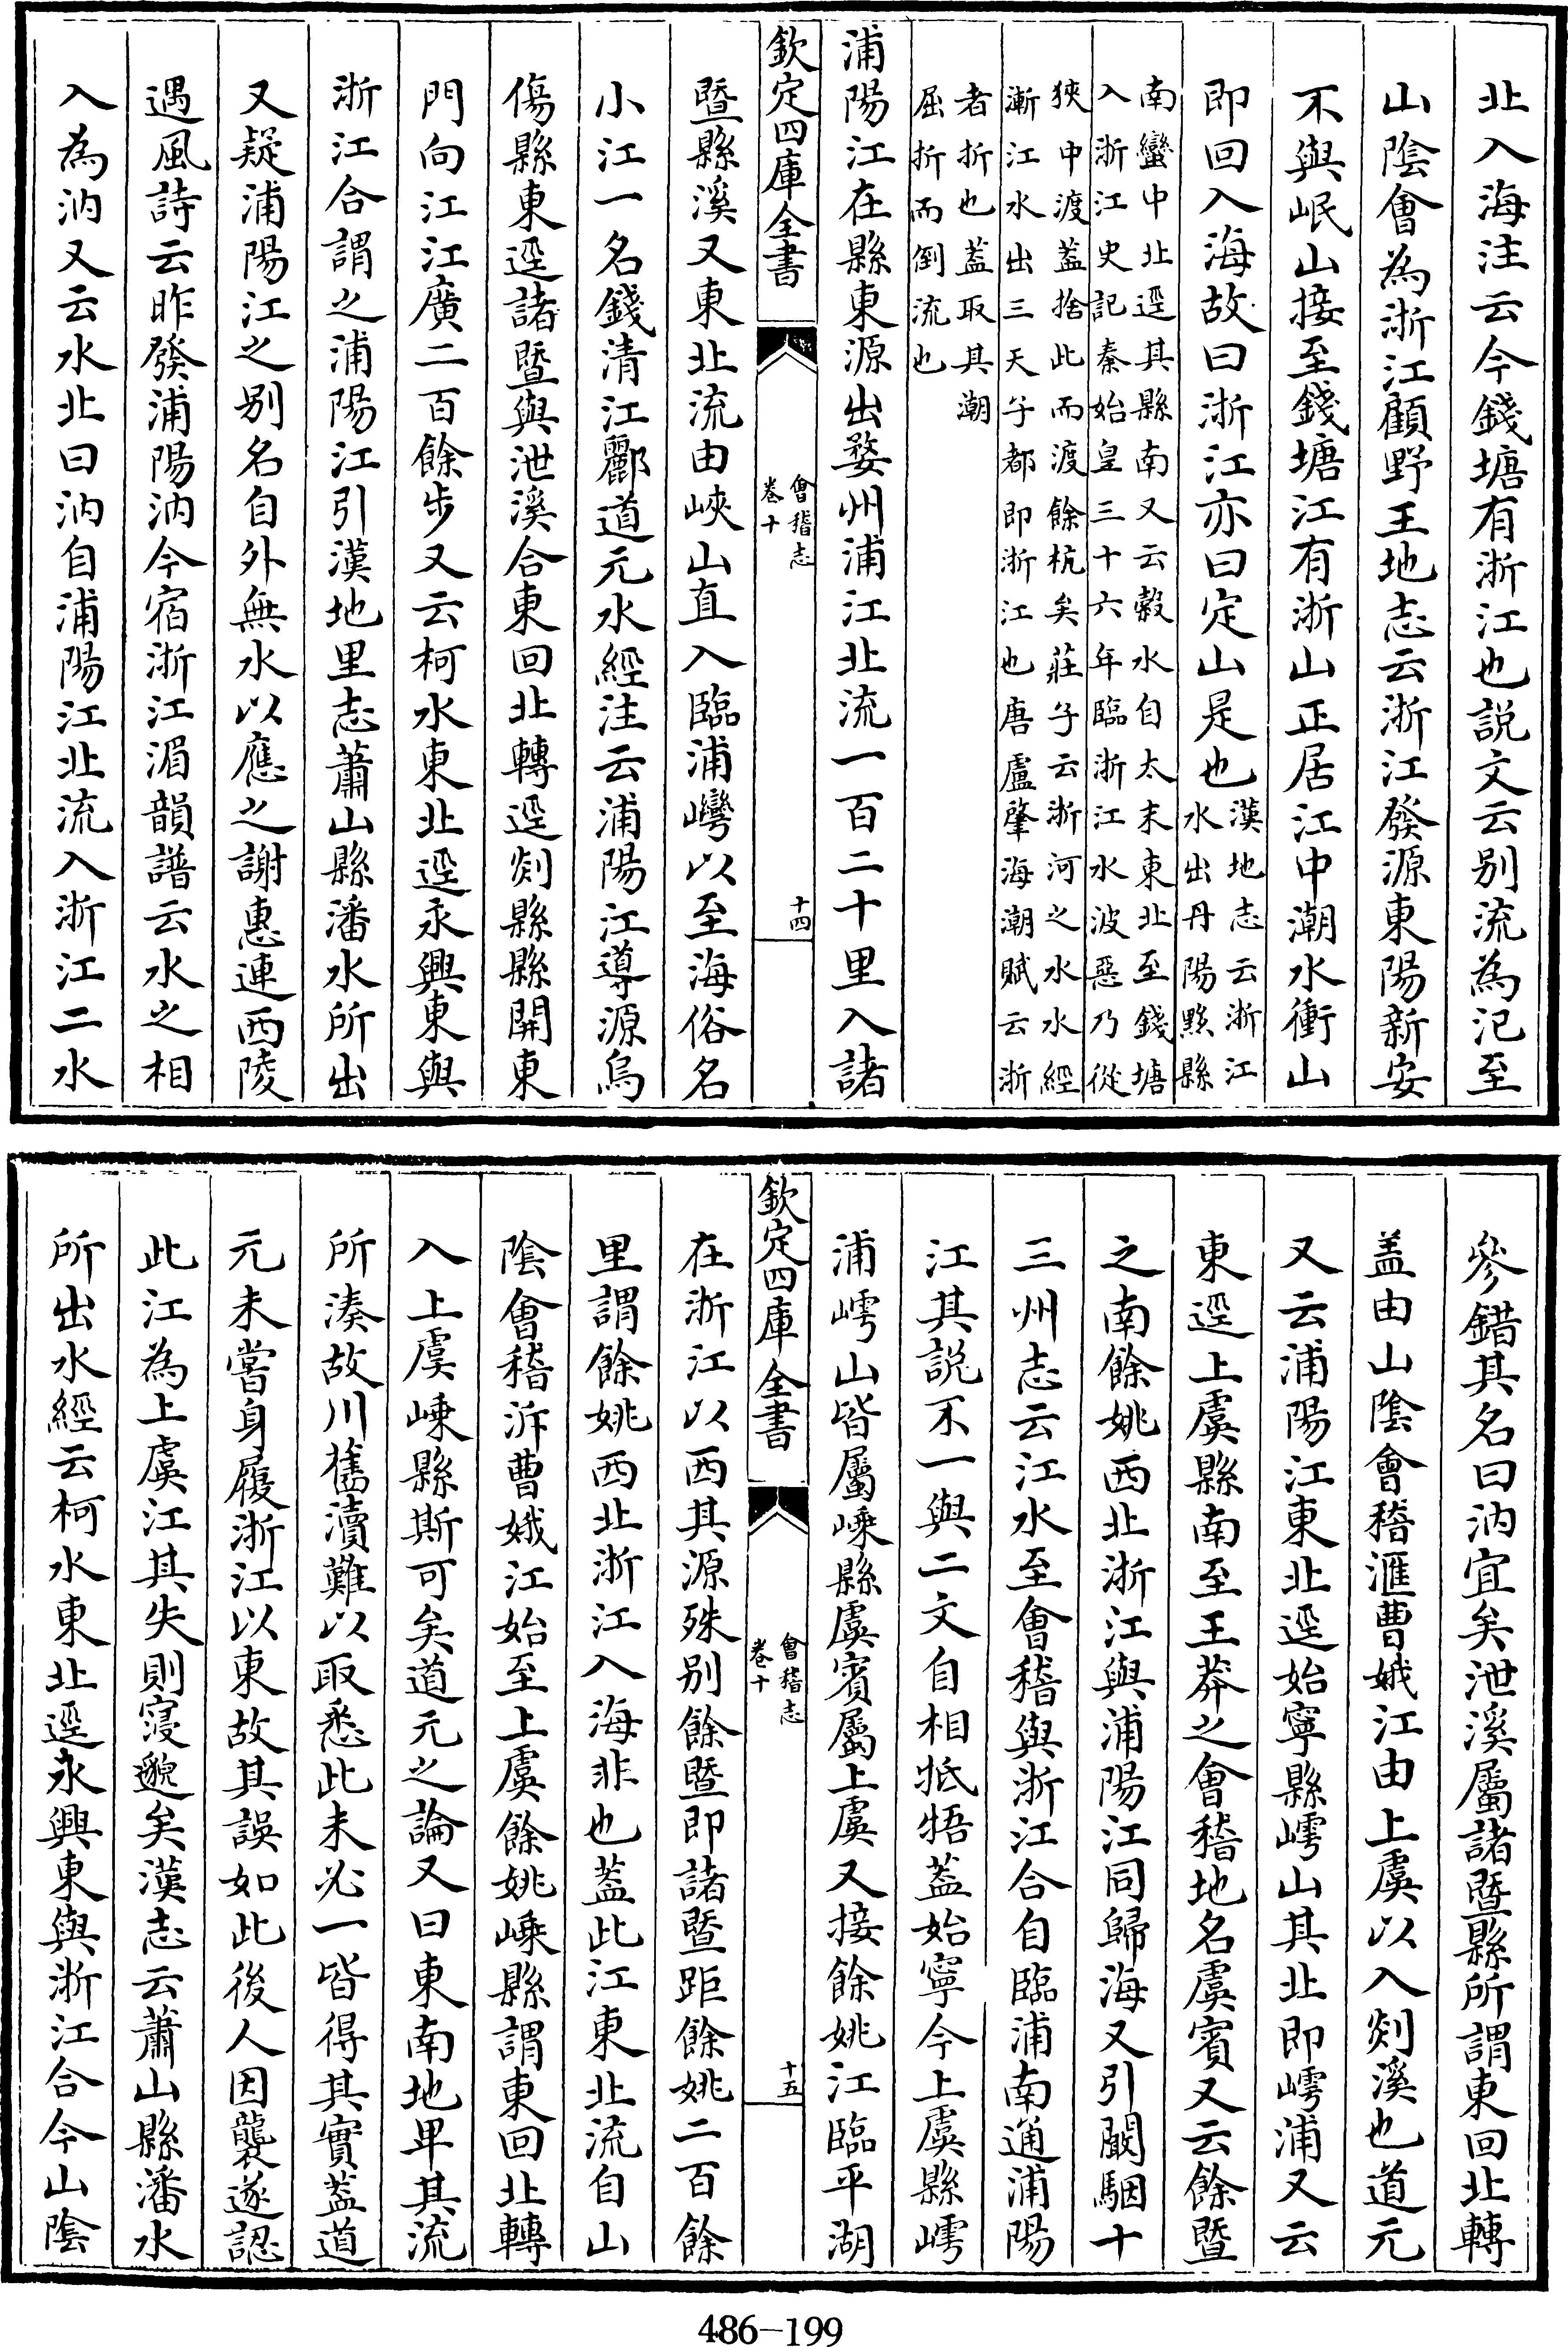 北入海注云今錢塘有浙江也説文云别流為汜至
山陰會為浙江顧野王地志云浙江發源東陽新安
不與岷山接至錢塘江有浙山正居江中潮水衝山
即回入海故曰浙江亦曰定山是也漢地志云浙江水出丹陽黟縣
南蠻中北逕其縣南又云穀水自太末東北至錢塘
入浙江史記秦始皇三十六年臨浙江水波惡乃從
狹中渡蓋捨此而渡餘杭矣莊子云浙河之水水經
漸江水出三天子都即浙江也唐盧肇海潮賦云浙
者折也蓋取其潮
屈折而倒流也
浦陽江在縣東源出婺州浦江北流一百二十里入諸
欽定四庫全書
會稽志
卷十
十四
暨縣溪又東北流由峽山直入臨浦灣以至海俗名
小江一名錢清江酈道元水經注云浦陽江導源烏
傷縣東逕諸暨與泄溪合東回北轉逕剡縣縣開東
門向江江廣二百餘步又云柯水東北逕永興東與
浙江合謂之浦陽江引漢地里志蕭山縣潘水所出
又疑浦陽江之别名自外無水以應之謝惠連西陵
遇風詩云昨發浦陽汭今宿浙江湄韻譜云水之相
入為汭又云水北曰汭自浦陽江北流入浙江二水
參錯其名曰汭宜矣泄溪屬諸暨縣所謂東回北轉
盖由山隂會稽滙曹娥江由上虞以入剡溪也道元
又云浦陽江東北逕始寧縣嶀山其北即嶀浦又云
東逕上虞縣南至王莽之會稽地名虞賓又云餘暨
之南餘姚西北浙江與浦陽江同歸海又引闞駰十
三州志云江水至會稽與浙江合自臨浦南通浦陽
江其説不一與二文自相牴牾蓋始寧今上虞縣嶀
浦嶀山皆屬嵊縣虞賓屬上虞又接餘姚江臨平湖
欽定四庫全書
會稽志
卷十
十五
在浙江以西其源殊别餘暨即諸暨距餘姚二百餘
里謂餘姚西北浙江入海非也蓋此江東北流自山
隂會稽泝曹娥江始至上虞餘姚嵊縣謂東回北轉
入上虞嵊縣斯可矣道元之論又曰東南地卑其流
所湊故川舊瀆難以取悉此未必一皆得其實蓋道
元未嘗身履浙江以東故其誤如此後人因襲遂認
此江為上虞江其失則寖邈矣漢志云蕭山縣潘水
所出水經云柯水東北逕永興東與浙江合今山隂
486-199